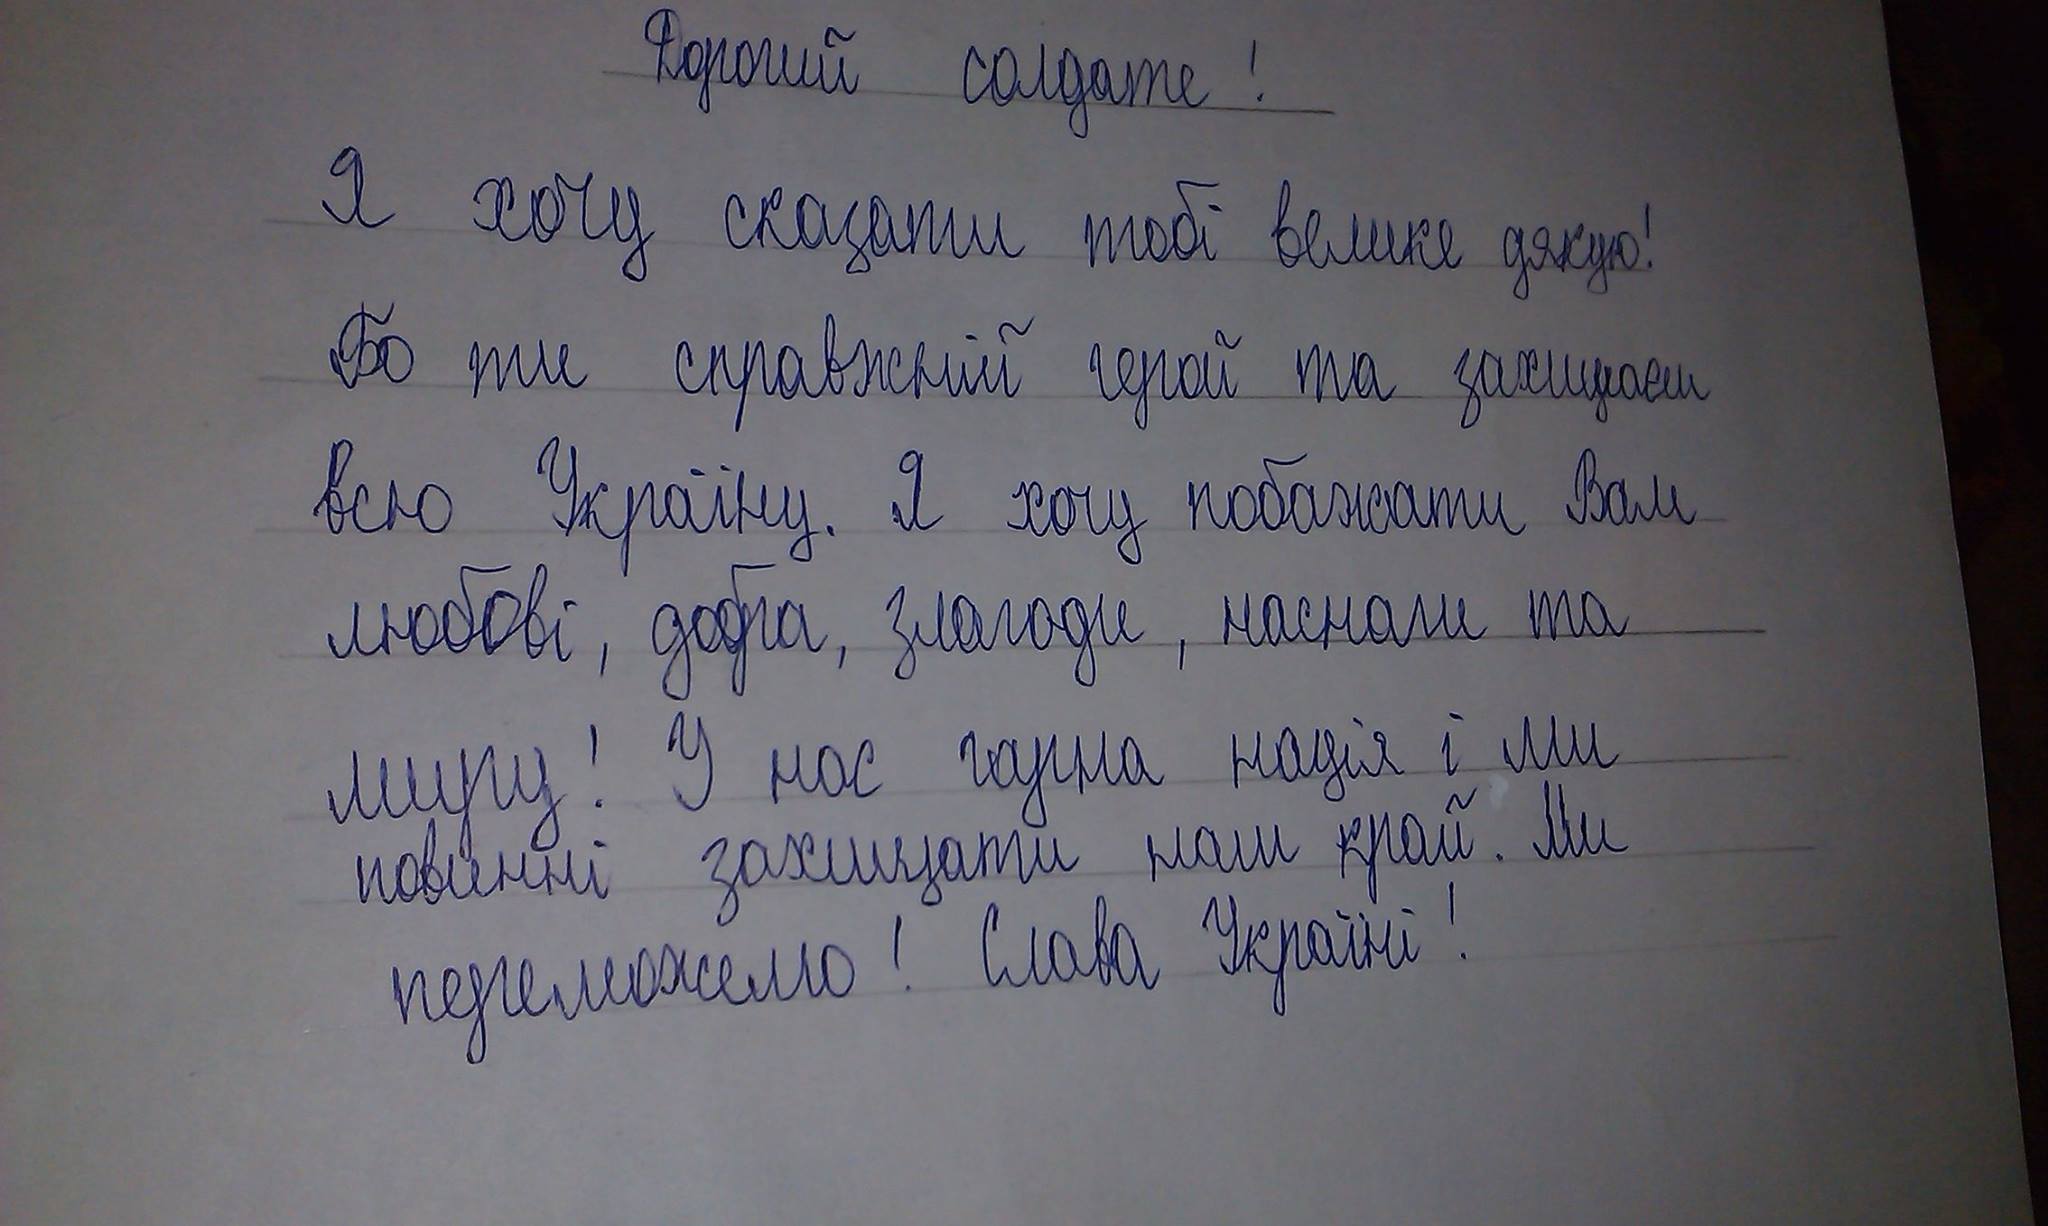 Дорогий солдате!
Я хочу сказати тобі велике дякую!
Бо ти справжній герой та захищаєш
всю Україну. Я хочу побажати Вам
любові, добра, злагоди, наснаги та
миру! У нас гарна нація і ми
повинні захищати наш край. Ми
переможемо! Слава Україні!